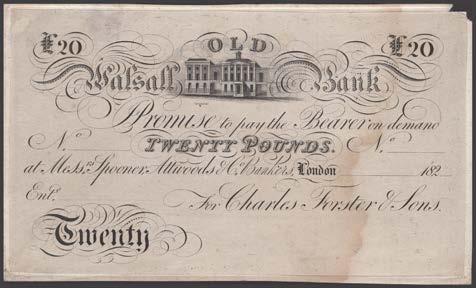 £20 OLD £20
Walsall Bank
I Promise to pay the Bearer on demand
No TWENTY POUNDS. No
at Messrs Spooner, Attwoods & Co. Bankers, London 182
Entd. For Charles Forster & Sons.
Twenty